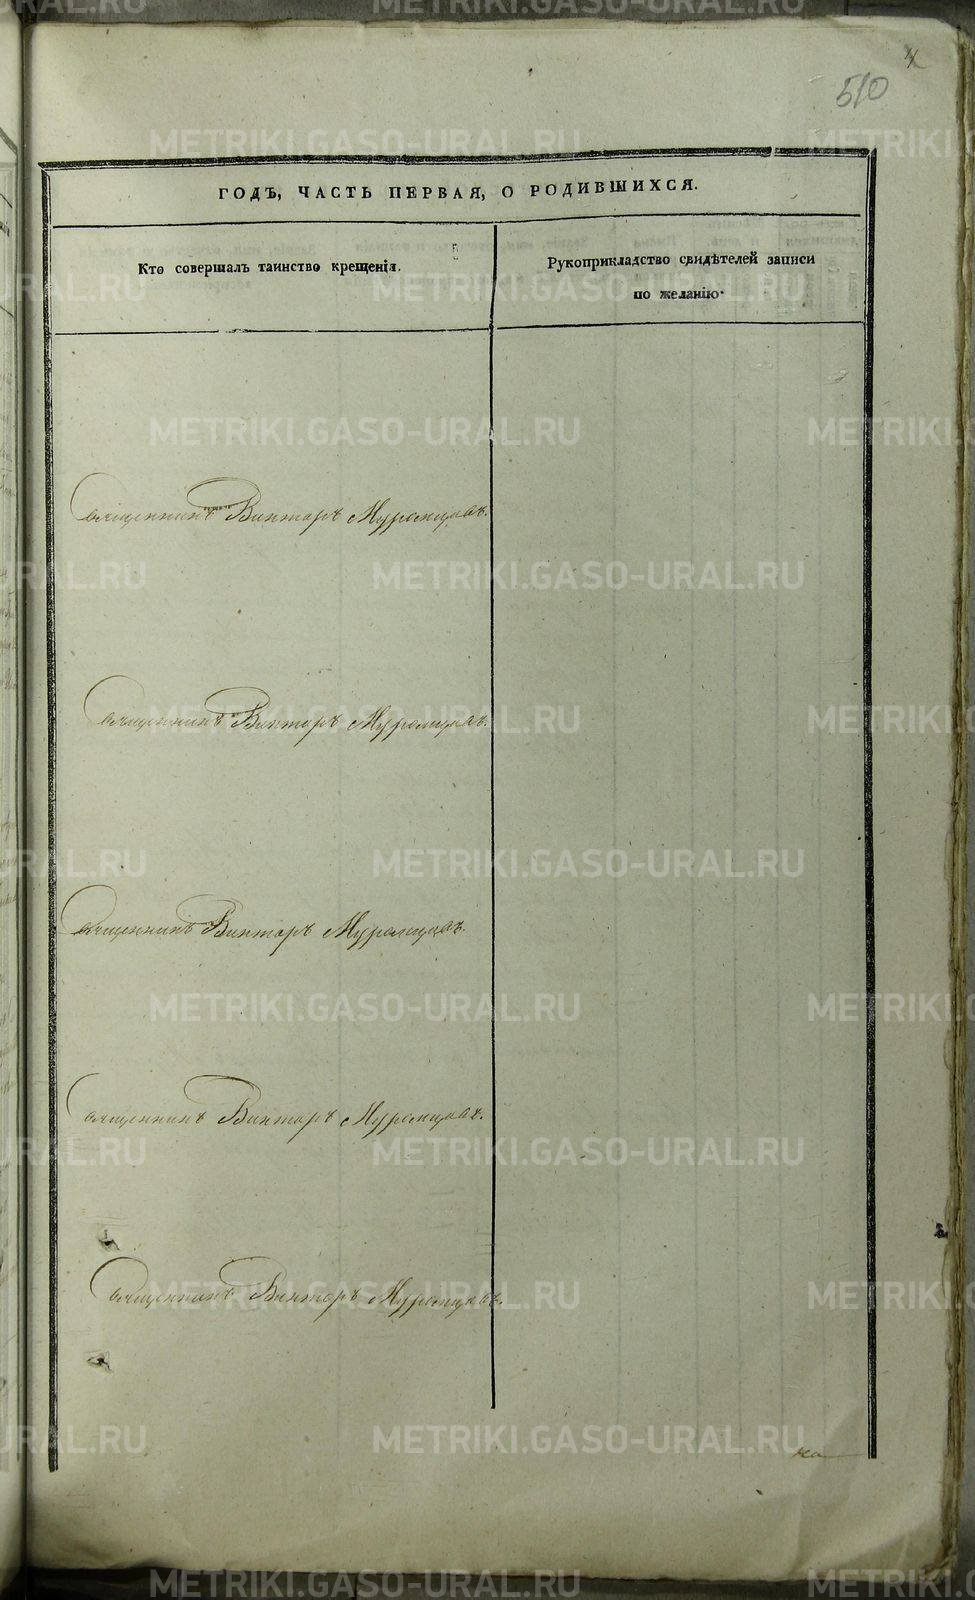 4
510
ГОДЪ, ЧАСТЬ ПЕРВАЯ, О РОДИВШИХСЯ.
Кто совершалъ таинство крещенія.
Рукоприкладство свидѣтелей записи
по желанію.
Священникъ Викторъ Муромцовъ.
Священникъ Викторъ Муромцовъ.
Священникъ Викторъ Муромцовъ.
Священникъ Викторъ Муромцовъ.
Священникъ Викторъ Муромцовъ.
METRIKI.GASO-URAL.RU